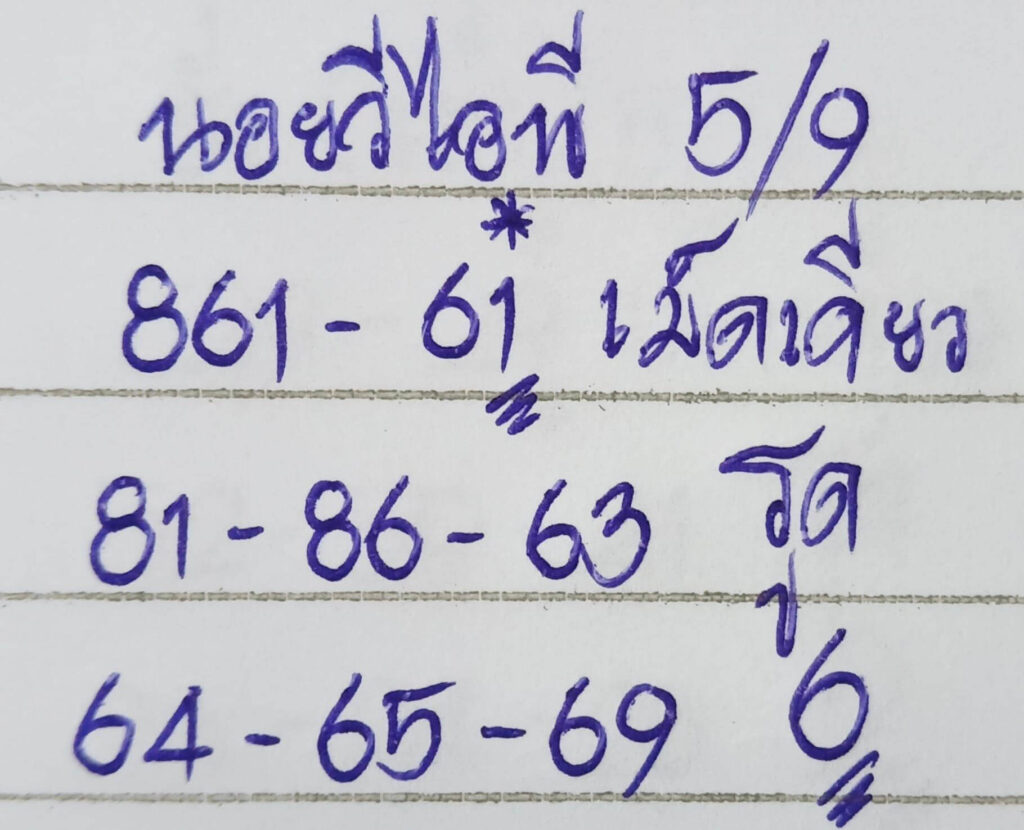 นอยวีไอพี 5/9
*
861 - 61 เม็ดเดียว
81 - 86 - 63 รูด
64 - 65 - 69 6